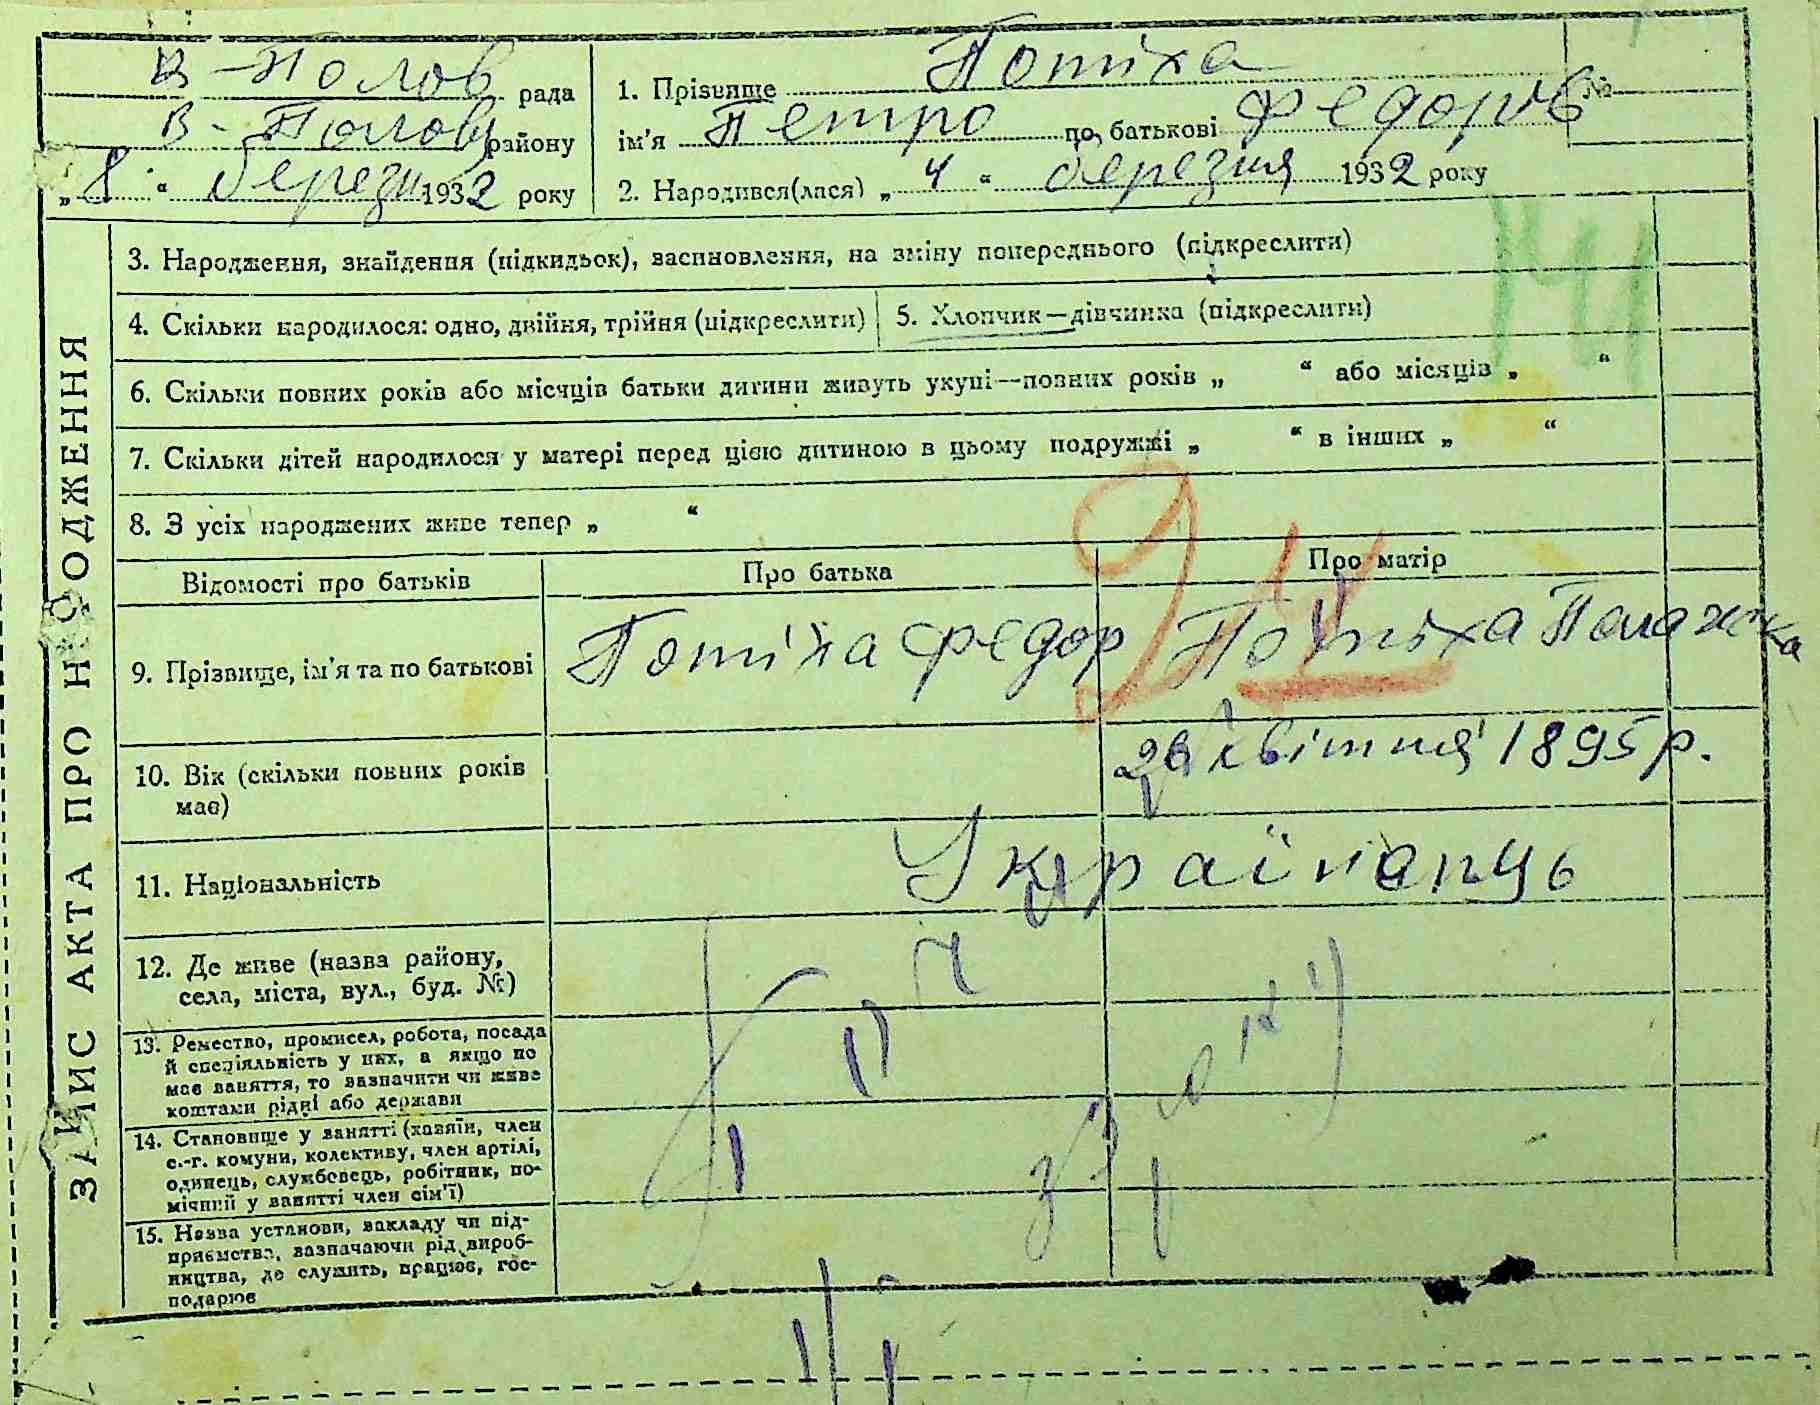 В-Полов рада
В-Полов району
„8“ березн 1932 року
1. Прізвище Потіха №
ім'я Петро по батькові Федорів
2. Народився(лася) „4“ березня 1932 року
141
ЗАПИС АКТА ПРО НАРОДЖЕННЯ
3. Народження, знайдення (підкидьок), засиновлення, на зміну попереднього (підкреслити)
4. Скільки народилося: одно, двійня, трійня (підкреслити)
5. Хлопчик—дівчинка (підкреслити)
6. Скільки повних років або місяців батьки дитини живуть укупі—повних років „ “ або місяців „ “
7. Скільки дітей народилося у матері перед цією дитиною в цьому подружжі „ “ в інших „ “
8. З усіх народжених живе тепер „ “
Відомості про батьків
Про батька
Про матір
9. Прізвище, ім'я та по батькові
Потіха Федор
Потіха Палажка
10. Вік (скільки повних років
має)
26 квітня 1895 р.
11. Національність
Українець
12. Де живе (назва району,
села, міста, вул., буд. №)
13. Ремество, промисел, робота, посада
й спеціяльність у них, а якщо не
має заняття, то зазначити чи живе
коштами рідні або держави
14. Становище у занятті (хазяїн, член
с.-г. комуни, колективу, член артілі,
одинець, службовець, робітник, по-
мічний у занятті член сім'ї)
15. Назва установи, закладу чи під-
приємства, зазначаючи рід вироб-
ництва, де служить, працює, гос-
подарює